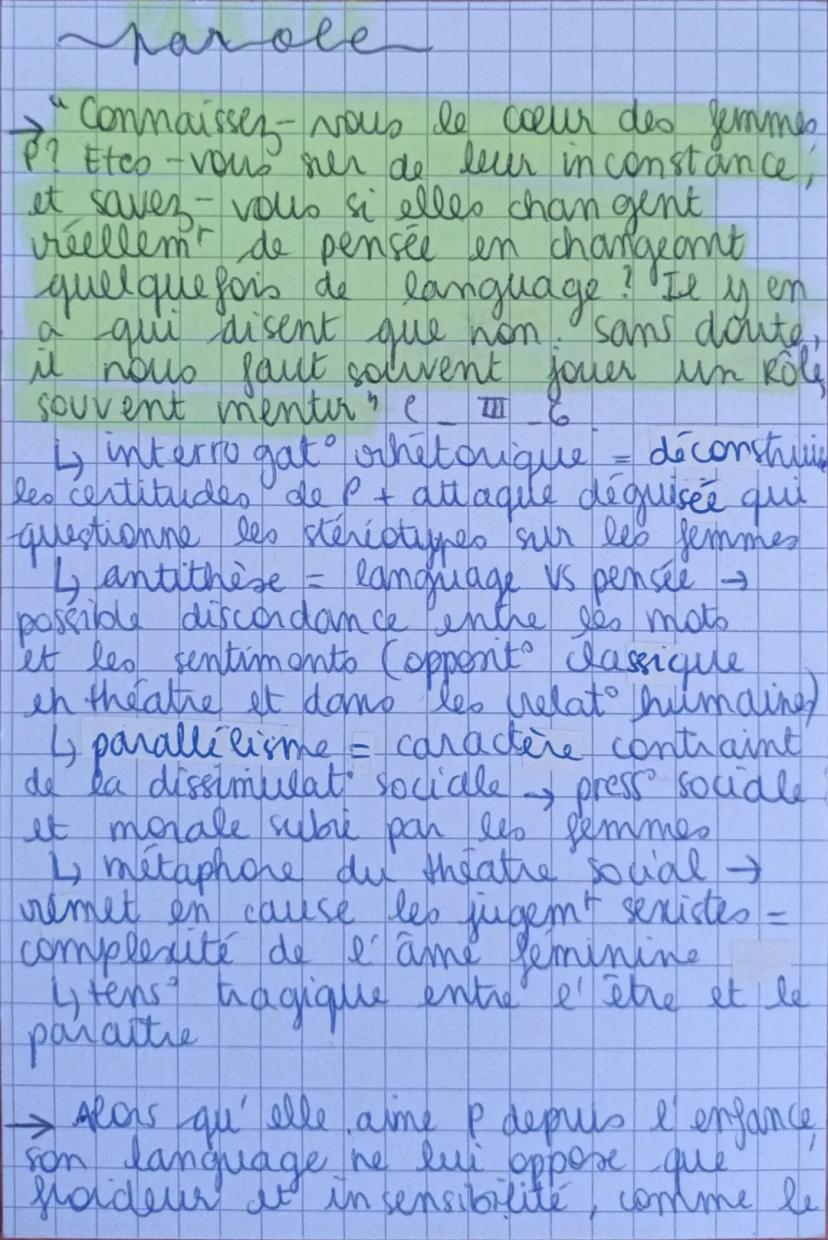 parole
→ "Connaissez-vous le cœur des femmes
P? Etes-vous sûr de leur inconstance,
et savez-vous si elles changent
réellemt de pensée en changeant
quelquefois de language? Il y en
a qui disent que non. Sans doute,
il nous faut souvent jouer un rôle,
souvent mentir" C _ III _ 6
↳ interrogat° rhétorique = déconstruire
les certitudes de P + attaque déguisée qui
questionne les stéréotypes sur les femmes
↳ antithèse = language vs pensée →
possible discordance entre les mots
et les sentiments (opposit° classique
en théâtre et dans les relat° humaine)
↳ parallélisme = caractère contraint
de la dissimulat° sociale → press° sociale
et morale subie par les femmes
↳ métaphore du théâtre social →
remet en cause les jugemt sexistes =
complexité de l'âme féminine
↳ tens° tragique entre l'être et le
paraître
→ Alors qu'elle aime P depuis l'enfance,
son language ne lui oppose que
froideur et insensibilité, comme le